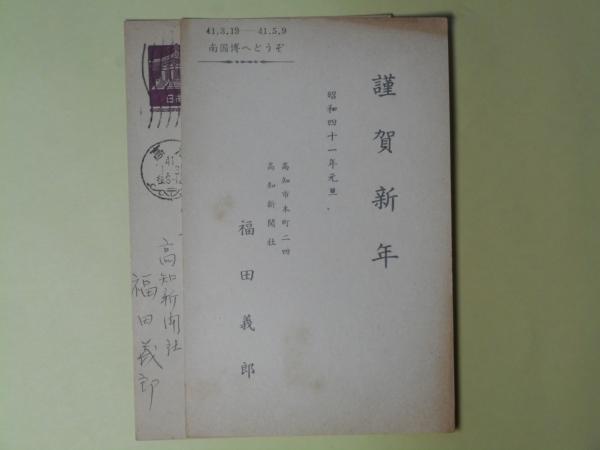 41.3.19――41.5.9
南国博へどうぞ
謹賀新年
昭和四十一年元旦
高知市本町二四
高知新聞社
福田義郎
高知新聞社
福田義郎